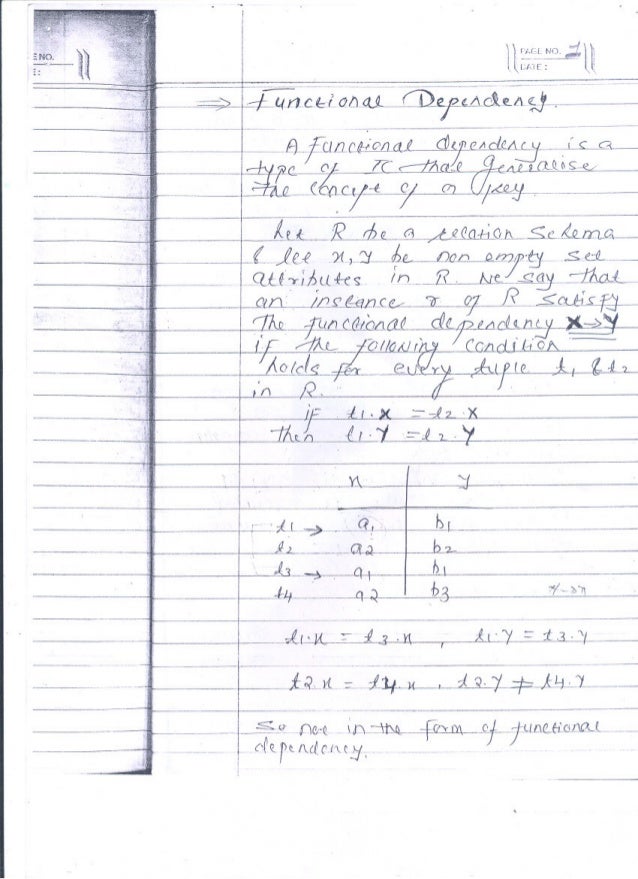 E NO.
E:
PAGE NO. 1
DATE:
⇒ Functional Dependency.
A functional dependency is a
type of IC that Generalise
the concept of a key
Let R be a relation Schema
& let x, y be non empty set
attributes in R. We say that
an instance r of R satisfy
The functional dependency X→Y
if the following condition
holds for every tuple t1 & t2
in R.
if t1.X = t2.X
then t1.Y = t2.Y
x y
t1 → a1 b1
t2 a2 b2
t3 → a1 b1
t4 a2 b3
t1.x = t3.x , t1.y = t3.y
t2.x = t4.x , t2.y ≠ t4.y
So not in the form of functional
dependency.